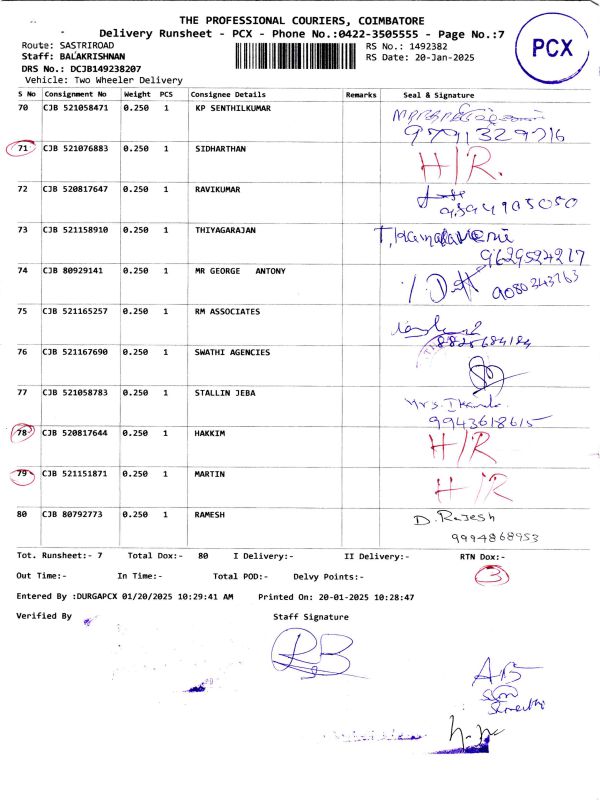 THE PROFESSIONAL COURIERS, COIMBATORE
Delivery Runsheet - PCX - Phone No.:0422-3505555 - Page No.:7
Route: SASTRIROAD
RS No.: 1492382
Staff: BALAKRISHNAN
RS Date: 20-Jan-2025
DRS No.: DCJB149238207
Vehicle: Two Wheeler Delivery
PCX
S No Consignment No Weight PCS Consignee Details Remarks Seal & Signature
70 CJB 521058471 0.250 1 KP SENTHILKUMAR
71 CJB 521076883 0.250 1 SIDHARTHAN H/R.
72 CJB 520817647 0.250 1 RAVIKUMAR
73 CJB 521158910 0.250 1 THIYAGARAJAN
9629524217
74 CJB 80929141 0.250 1 MR GEORGE ANTONY
9080343763
75 CJB 521165257 0.250 1 RM ASSOCIATES
76 CJB 521167690 0.250 1 SWATHI AGENCIES
77 CJB 521058783 0.250 1 STALLIN JEBA
9943618615
78 CJB 520817644 0.250 1 HAKKIM H/R
79 CJB 521151871 0.250 1 MARTIN H/R
80 CJB 80792773 0.250 1 RAMESH D. Rajesh
9994868953
Tot. Runsheet:- 7 Total Dox:- 80 I Delivery:- II Delivery:- RTN Dox:-
3
Out Time:- In Time:- Total POD:- Delvy Points:-
Entered By :DURGAPCX 01/20/2025 10:29:41 AM Printed On: 20-01-2025 10:28:47
Verified By Staff Signature